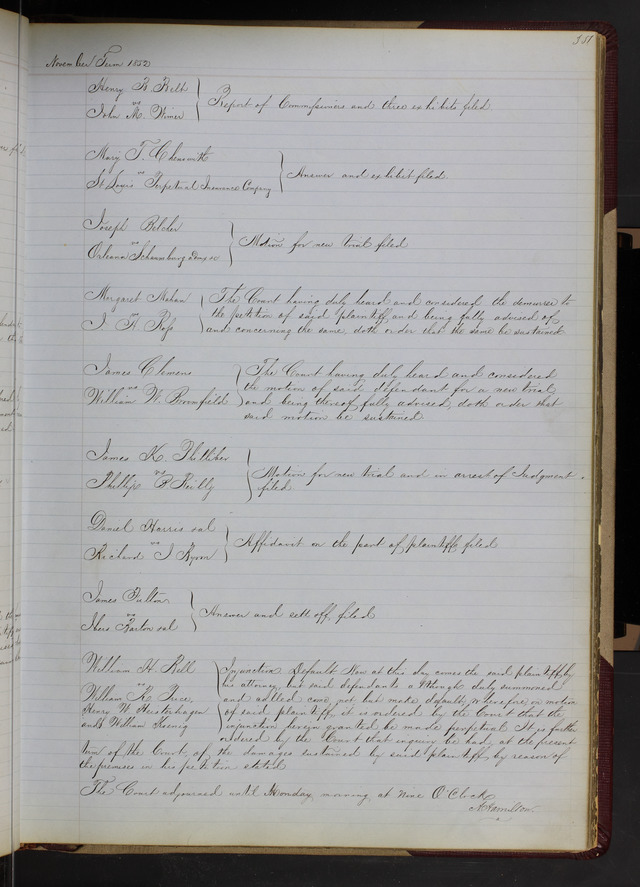 351
November Term 1852
Henry B. Belt
vs
John M. Wimer
Report of Commissioners and three exhibits filed.
Mary T. Chenowith
vs
St Louis Perpetual Insurance Company
Answer and exhibit filed.
Joseph Belcher
vs
Orleana Schaumburg admx
Motion for new trial filed
Margaret Mahan
vs
The Court having duly heard and considered the demurrer to
the petition of said plaintiff, and being fully advised of
and concerning the same doth order that the same be sustained
James Clemens
vs
William W. Bromfield
The Court having duly heard and considered
the motion of said defendant for a new trial
and being thereof fully advised, doth order that
said motion be sustained.
James K.
vs
Phillip Reilly
Motion for new trial and in arrest of Judgment
filed.
Daniel Harris et al
vs
Richard J
Affidavit on the part of plaintiff filed
James Fulton
vs
Barton et al
Answer and sett off, filed
William H. Bell
vs
William K.
Henry W.
and William Koenig
Injunction Default Now at this day comes the said plaintiff by
his attorney, but said defendants although duly summoned
and called come not, but make default, wherefore on motion
of said plaintiff, it is ordered by the Court that the
injunction herein granted be made perpetual It is further
ordered by the Court that inquiry be had, at the present
term of the Court, of the damages sustained by said plaintiff, by reason of
the premises in his petition stated
The Court adjourned until Monday morning at Nine O'Clock
A Hamilton